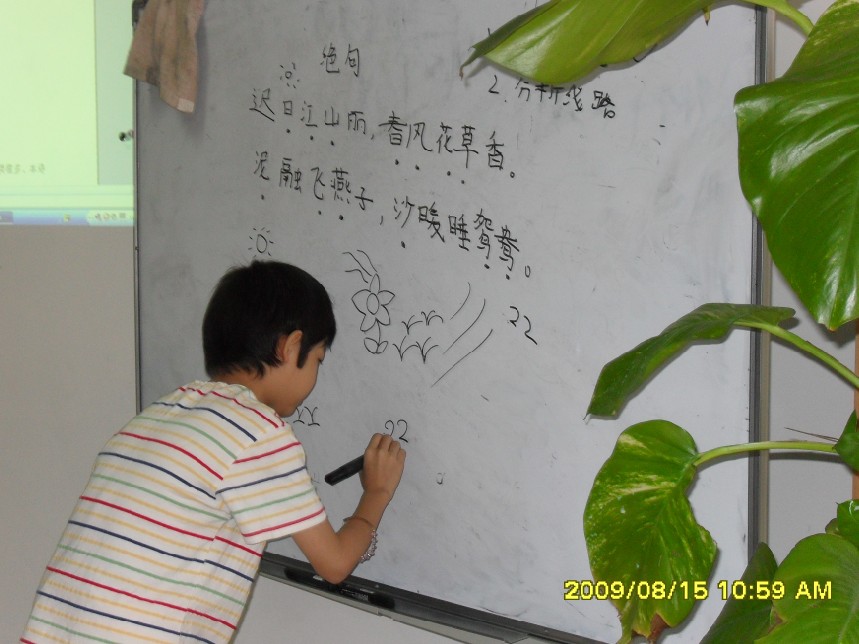 绝句
2.分析线路
迟日江山丽,春风花草香。
泥融飞燕子,沙暖睡鸳鸯。
22
22
2009/08/15 10:59 AM